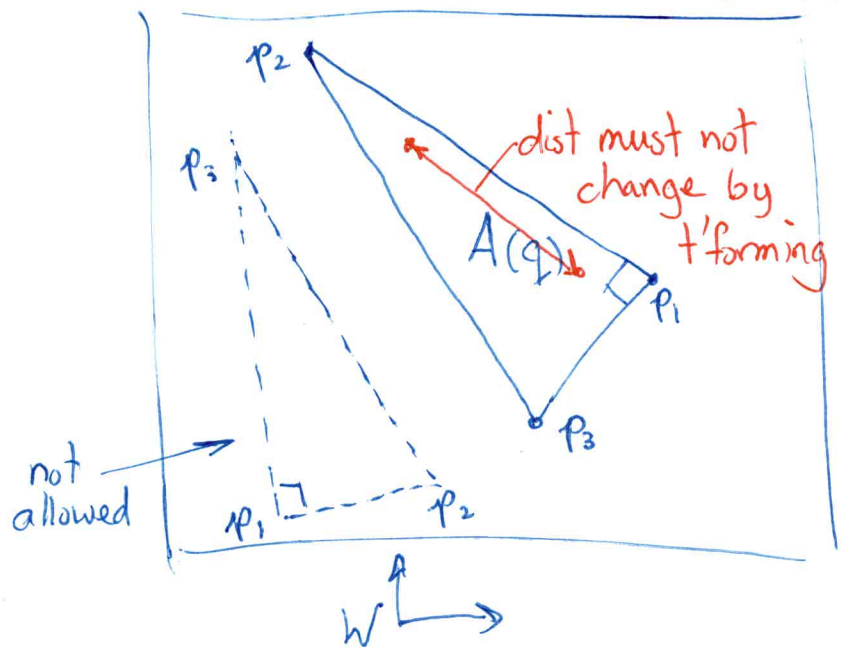 p2
dist must not
change by
t'forming
p3
A(q)
p1
p3
not
allowed
p1
p2
W